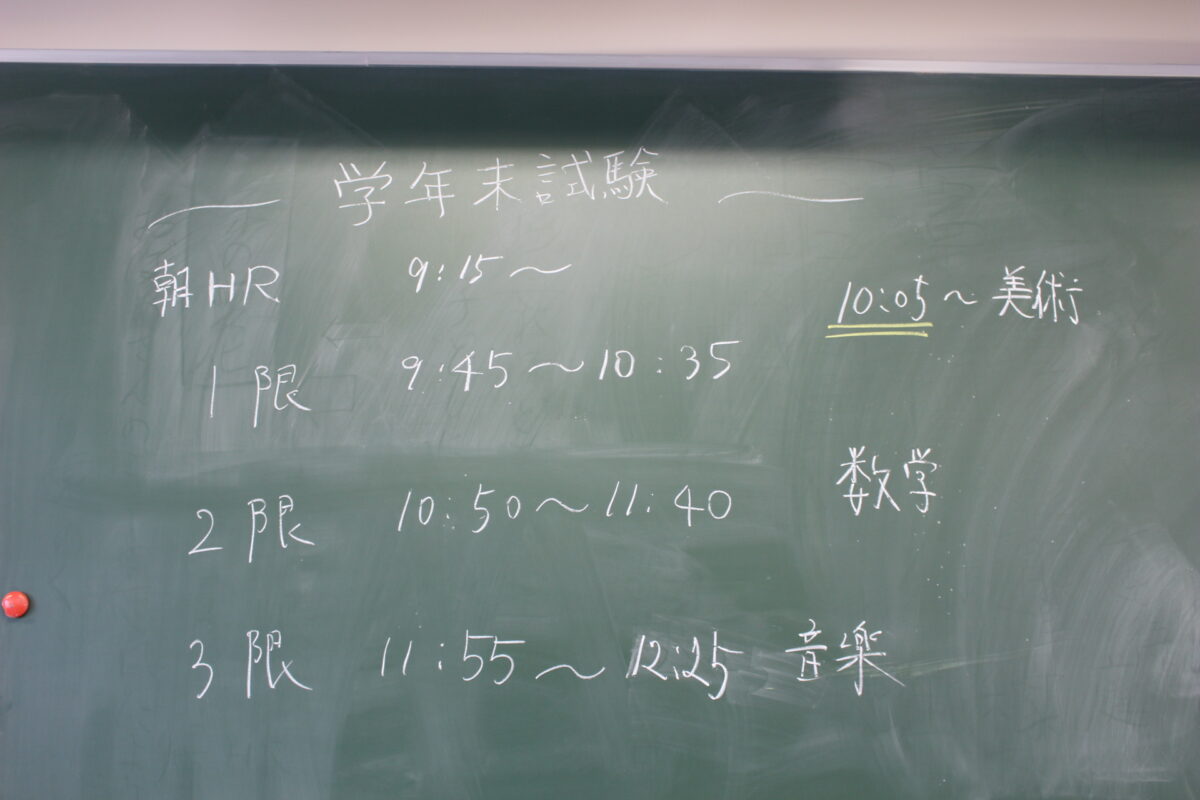 学年末試験
朝HR 9:15〜 10:05〜美術
1限 9:45〜10:35
2限 10:50〜11:40 数学
3限 11:55〜12:25 音楽